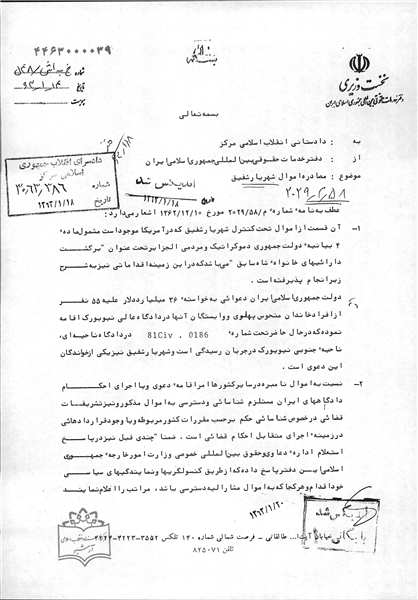 ۴۴۶۳۰۰۰۰۳۹
نخست وزیری
دفتر خدمات حقوقی بین المللی جمهوری اسلامی ایران
شماره
تاریخ
پیوست
بسمه تعالی
به : دادستانی انقلاب اسلامی مرکز
از : دفتر خدمات حقوقی بین المللی جمهوری اسلامی ایران
موضوع : مصادره اموال شهریار شفیق
دادسرای انقلاب جمهوری
اسلامی مرکز
شماره ۳۰۶۳٬۳۸۶
تاریخ ۱۳۶۳/۱/۱۸
اندیکس شد
۱۳۶۳/۱/۱۸
۲۰۲۹/۵۸
عطف به نامه شماره م/۲۰۲۹/۵۸ مورخ ۱۳۶۲/۱۲/۱۰ اشعار می‌دارد :
۱- آن قسمت از اموال تحت کنترل شهریار شفیق که در آمریکا موجود است مشمول ماده
۴ بیانیه دولت جمهوری دموکراتیک و مردمی الجزایر تحت عنوان " برگشت
دارائیهای خانواده شاه سابق " می‌باشد که در این زمینه اقداماتی نیز به شرح
زیر انجام پذیرفته است .
دولت جمهوری اسلامی ایران دعوائی به خواسته ۳۶ میلیارد دلار علیه ۵۵ نفر
از افراد خاندان منحوس پهلوی و وابستگان آنها در دادگاه عالی نیویورک اقامه
نموده که در حال حاضر تحت شماره 81Civ . 0186 در دادگاه ناحیه ای ،
ناحیه جنوبی نیویورک در جریان رسیدگی است و شهریار شفیق نیز یکی از خواندگان
این دعوی است .
۲- نسبت به اموال نامبرده در سایر کشورها امر اقامه دعوی و یا اجرای احکام
دادگاههای ایران مستلزم شناسائی و دسترسی به اموال مذکور و نیز تشریفات
قضائی در خصوص شناسائی حکم بر حسب مقررات کشور مربوطه و یا وجود قراردادهائی
در زمینه اجرای متقابل احکام قضائی است . ضمنا" چندی قبل نیز در پاسخ
استعلام اداره دعاوی و حقوق بین المللی خصوصی وزارت امور خارجه جمهوری
اسلامی به این دفتر پاسخ داده که از طریق کنسولگریها و نمایندگیهای سیاسی
خود اقدام و هر کجا که به اموال مشارالیه دسترسی باشد ، مراتب را اعلام نمایند
۱۳۶۳/۱/۲۰
اندیکس شد
بایگانی
خیابان آیت اله طالقانی - فرصت شمالی شماره ۱۴۰ تلکس ۳۵۵۲-۴۲۲۳-۴۲۲۴
تلفن ۸۲۵۰۷۱